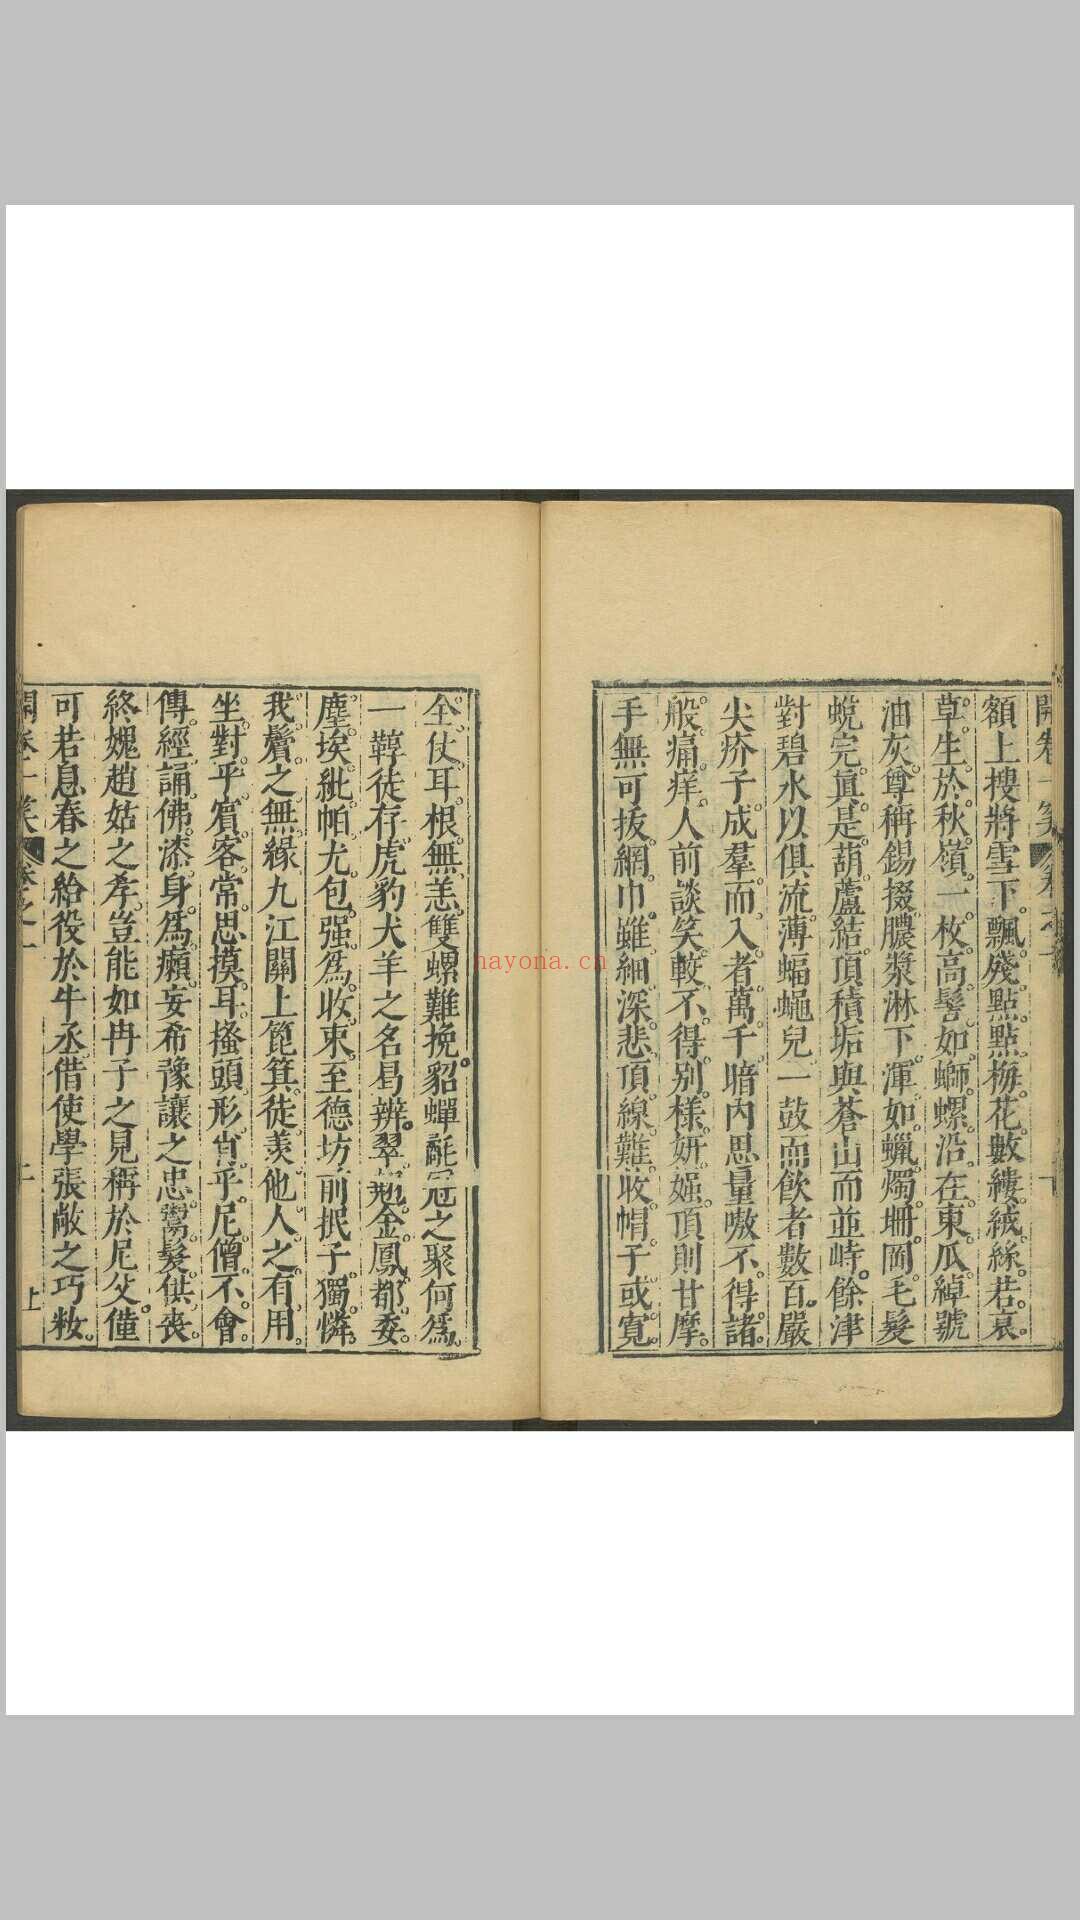 開卷一笑
額上搜將雪下飄。殘點點梅花。數縷絨絲。若衰
草。生於秋嶺。一枚高髻如螄螺。沿在東瓜。綽號
油灰。尊稱錫掇。膿漿淋下。渾如蠟燭珊岡。毛髮
蛻完。眞是葫蘆結頂。積垢與蒼山而並峙。餘津
對碧水以俱流。薄蝙蠅兒一鼓而飲者數百。嚴
尖疥子。成羣而入者萬千。暗內思量嗷不得。諸
般痛痒。人前談笑。較不得。別樣妍媸。頂則甘摩。
手無可拔。網巾。雖細深悲頂線難收。帽子或寬
全仗耳根無恙。雙螺難挽。貂蟬毾冠之聚何爲。
一鞟徒存。虎豹犬羊之名曷辨。翠翹金鳳。都委
塵埃。紕帕尤包。强爲收束。至德坊前抿子。獨憐
我鬢之無緣。九江關上篦箕。徒羨他人之有用。
坐對乎賓客。常思摸耳搔頭。形肖乎尼僧。不會
傳經誦佛。漆身爲癩。妄希豫讓之忠。鬻髮供喪。
終媿趙姑之孝。豈能如冉子之見稱於尼父。僅
可若息春之給役於牛丞。借使學張敞之巧粧。
開卷一笑 卷之一 二 上
hayona.cn